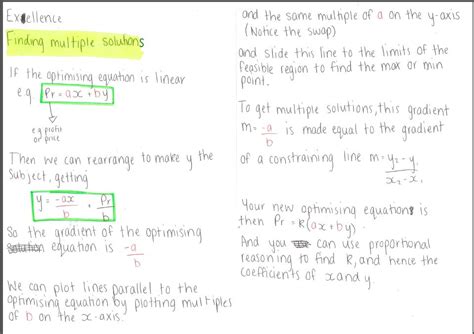 Excellence
Finding multiple solutions
If the optimising equation is linear
e.g Pr = ax + by
e.g profit
or price
Then we can rearrange to make y the
subject, getting
y = -ax/b + Pr/b
So the gradient of the optimising
equation is -a/b
We can plot lines parallel to the
optimising equation by plotting multiples
of b on the x-axis
and the same multiple of a on the y-axis
(Notice the swap)
and slide this line to the limits of the
feasible region to find the max or min
point.
To get multiple solutions, this gradient
m = -a/b is made equal to the gradient
of a constraining line m = y₂-y₁/x₂-x₁
Your new optimising equation is
then Pr = K(ax + by)
And you can use proportional
reasoning to find K, and hence the
coefficients of x and y.